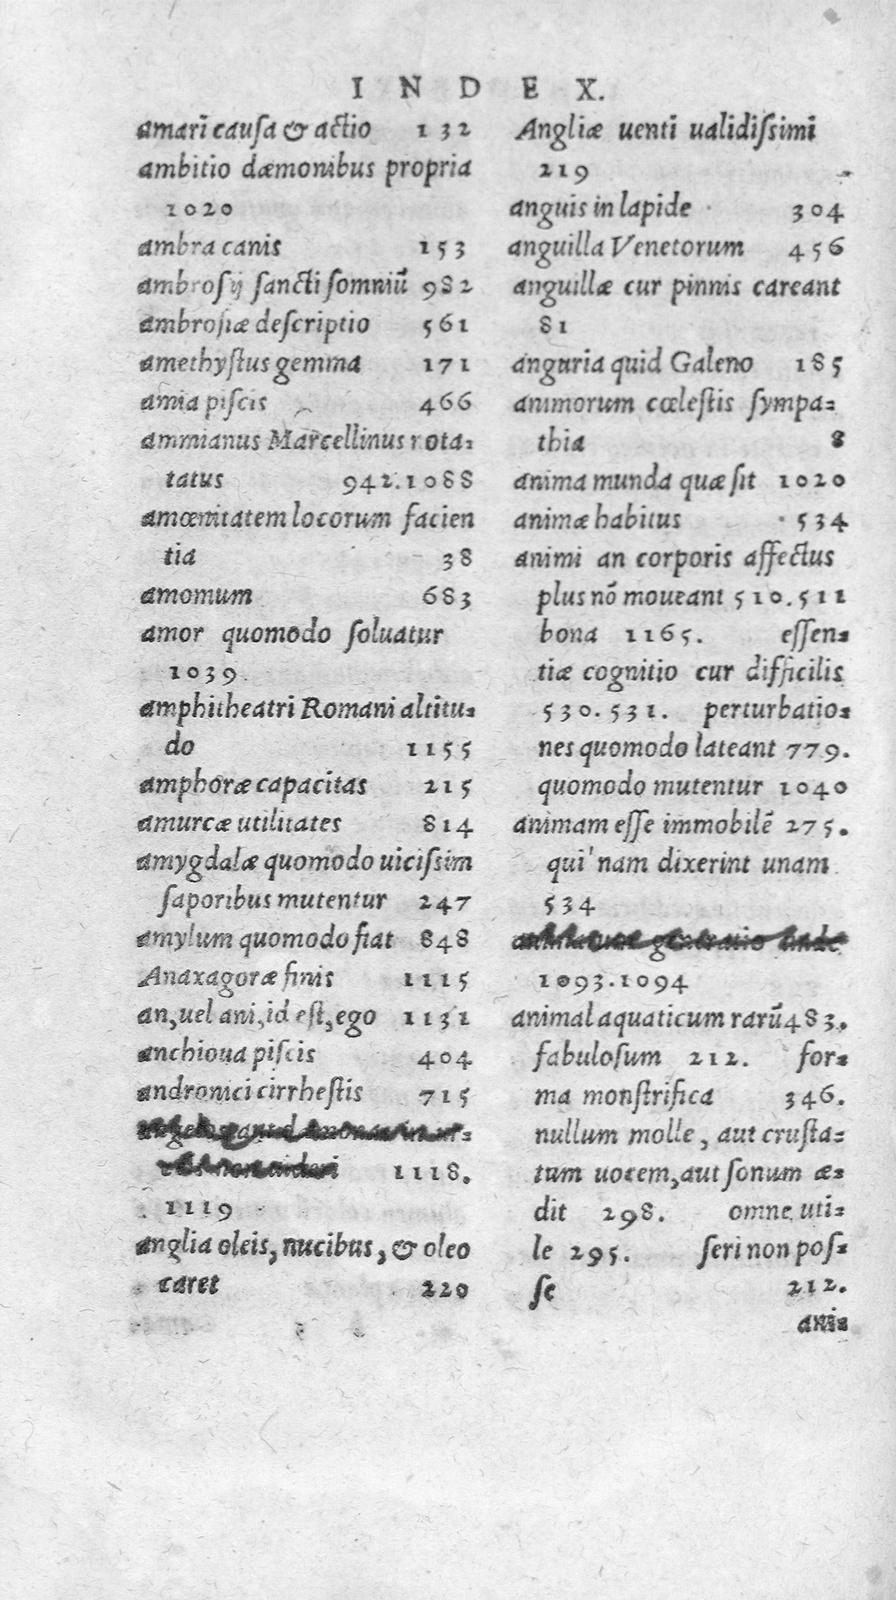 INDEX.
amari causa & actio 132
ambitio dæmonibus propria
1020
ambra canis 153
ambrosij sancti somniũ 982
ambrosiæ descriptio 561
amethystus gemma 171
amia piscis 466
ammianus Marcellinus rota=
tatus 942.1088
amœnitatem locorum facien
tia 38
amomum 683
amor quomodo soluatur
1039
amphitheatri Romani altitu=
do 1155
amphoræ capacitas 215
amurcæ utilitates 814
amygdalæ quomodo uicissim
saporibus mutentur 247
amylum quomodo fiat 848
Anaxagoræ finis 1115
an, uel ani, id est, ego 1131
anchioua piscis 404
andronici cirrhestis 715
1118.
1119
anglia oleis, nucibus, & oleo
caret 220
Angliæ uenti ualidissimi
219
anguis in lapide 304
anguilla Venetorum 456
anguillæ cur pinnis careant
81
anguria quid Galeno 185
animorum cœlestis sympa=
thia 8
anima munda quæ sit 1020
animæ habitus 534
animi an corporis affectus
plus nõ moueant 510.511
bona 1165. essen=
tiæ cognitio cur difficilis
530.531. perturbatio=
nes quomodo lateant 779.
quomodo mutentur 1040
animam esse immobilẽ 275.
qui'nam dixerint unam
534
1093.1094
animal aquaticum rarũ 483.
fabulosum 212. for=
ma monstrifica 346.
nullum molle, aut crusta=
tum uocem, aut sonum æ=
dit 298. omne uti=
le 295. seri non pos=
se 212.
ani=